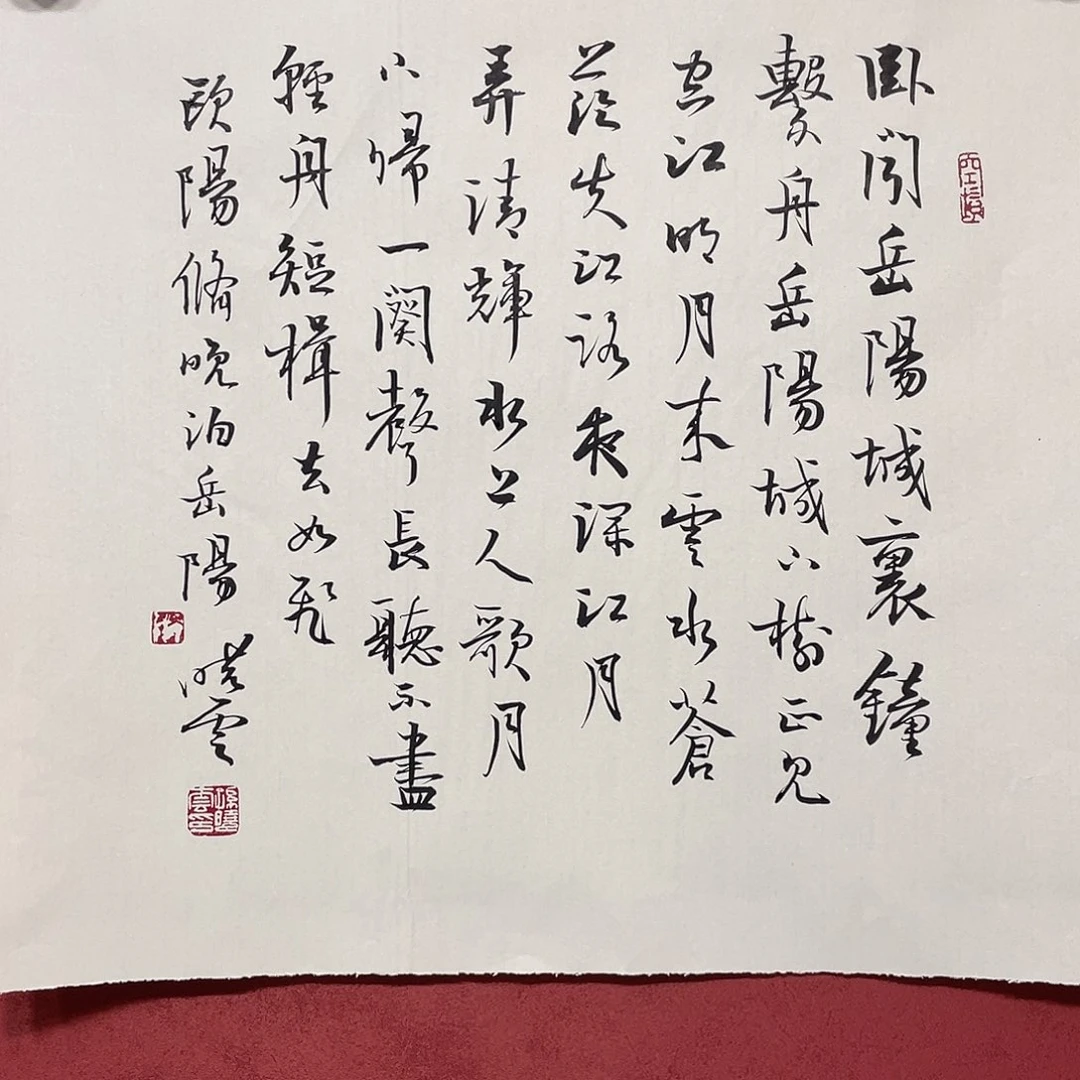 卧聞岳陽城裏鐘
繫舟岳陽城下樹正見
空江明月来雲水蒼
茫失江路夜深江月
弄清輝水上人歌月
下歸一闋聲長聽不盡
輕舟短楫去如飛
歐陽脩晚泊岳陽
曉雲
孫曉雲印